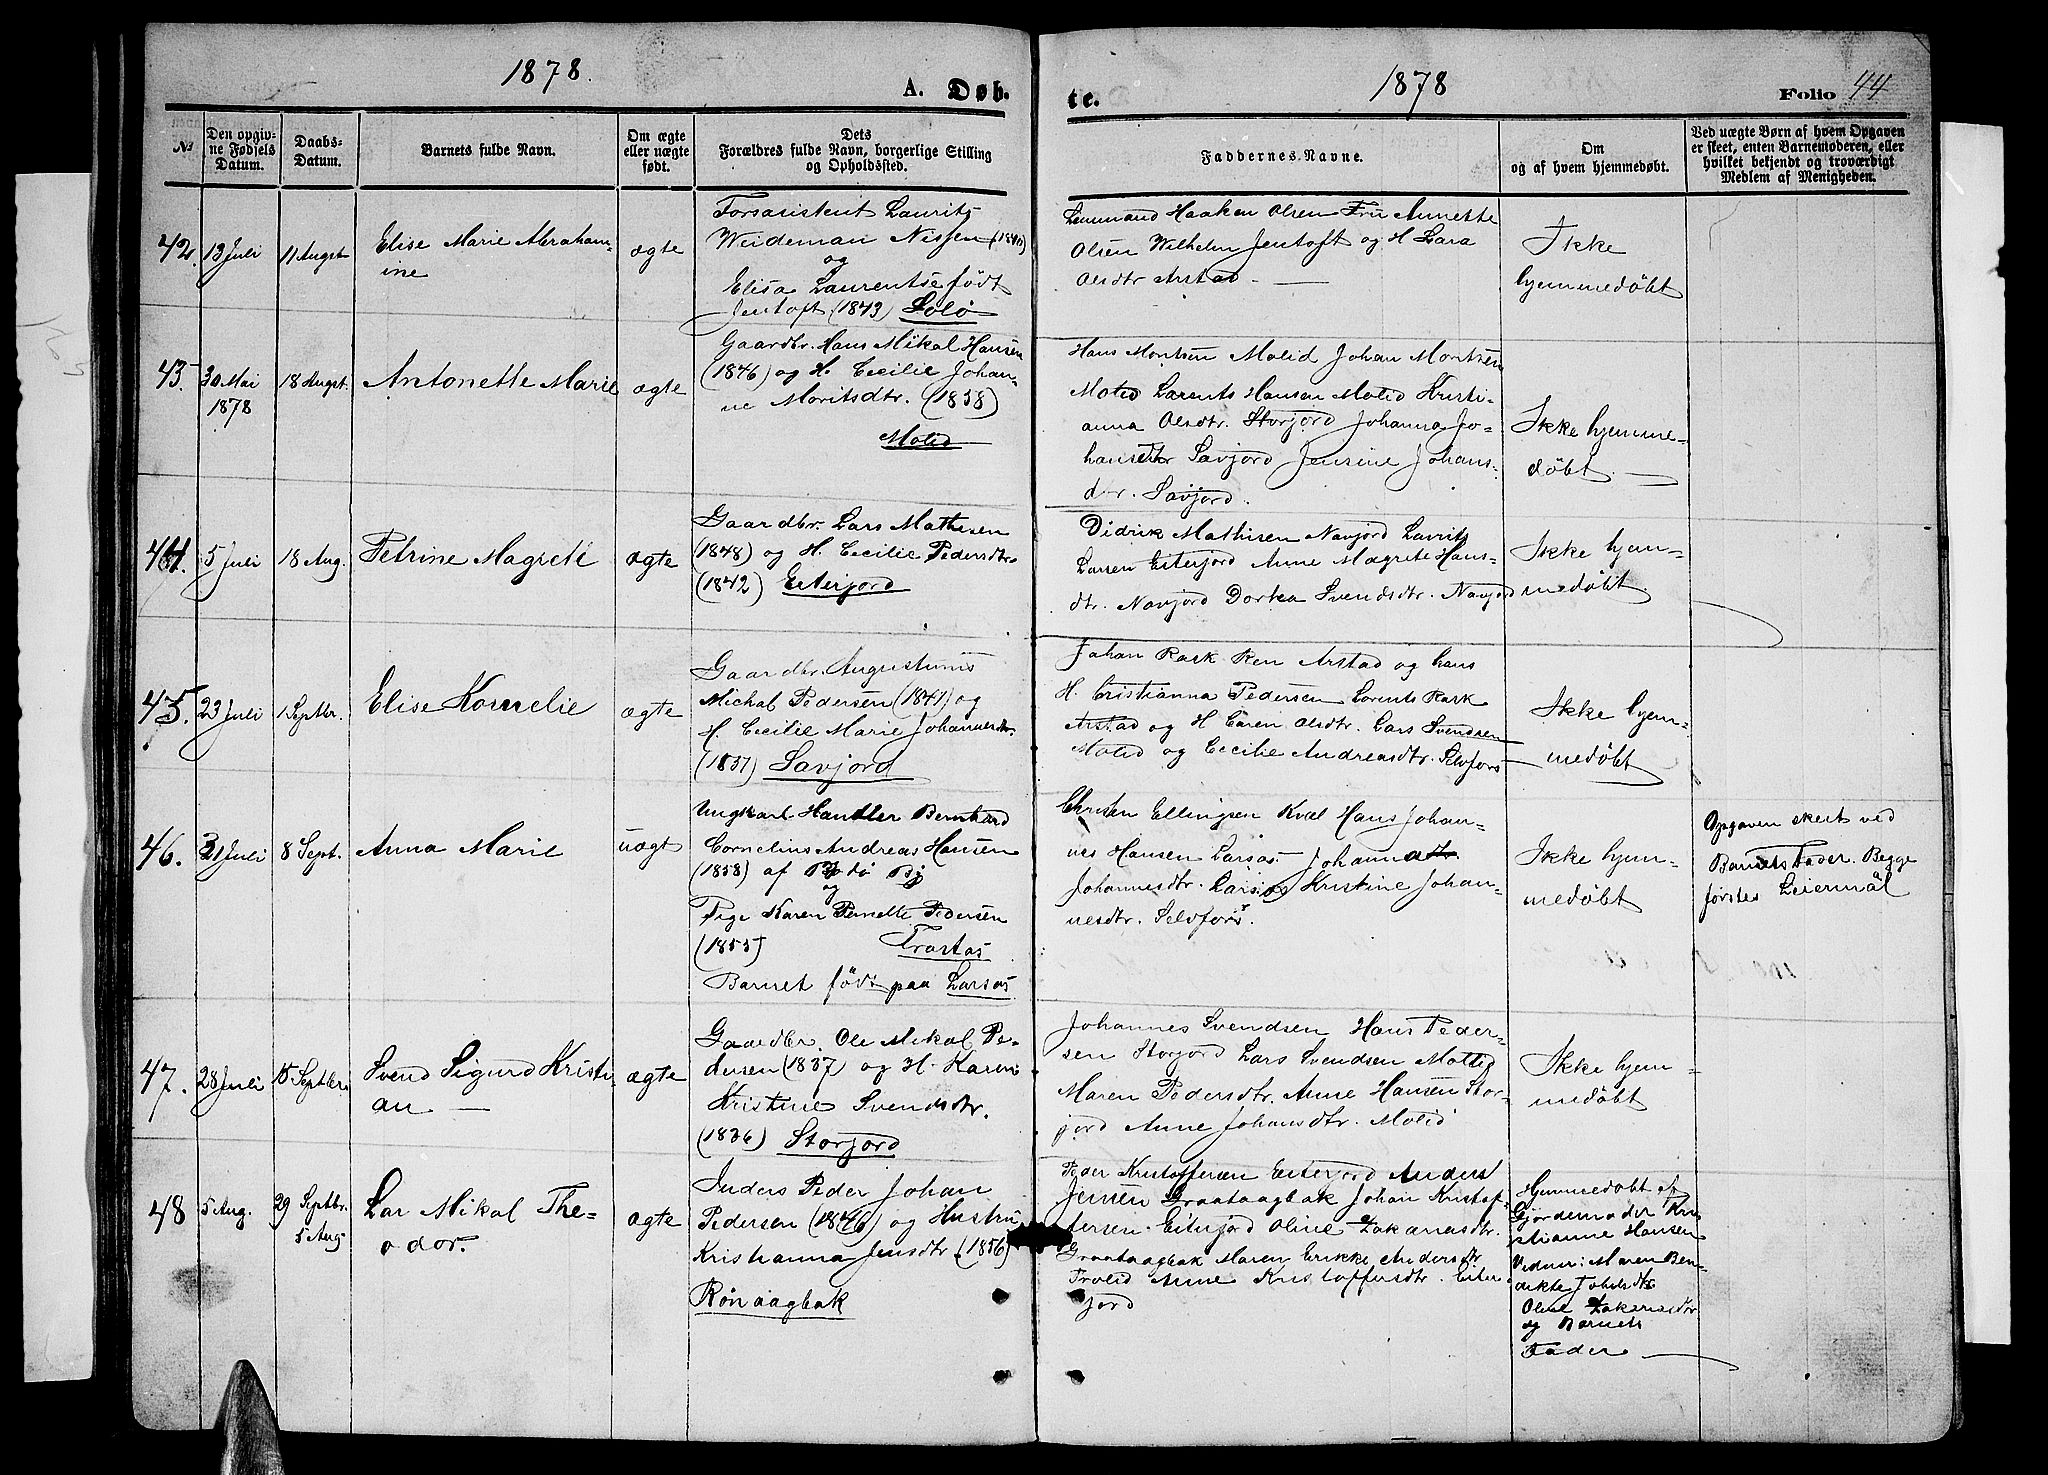 1878.
A. Døb.
te.
1878
Folio 44
№
Den opgiv-
ne Fødsels
Datum.
Daabs-
Datum.
Barnets fulde Navn.
Om ægte
eller uægte
født.
Dets
Forældres fulde Navn, borgerlige Stilling
og Opholdssted.
Faddernes Navne.
Om
og af hvem hjemmedøbt.
Ved uægte Børn af hvem Opgaven
er skeet, enten Barnemoderen, eller
hvilket bekjendt og troværdigt
Medlem af Menigheden.
42.
13 Juli
11 Augst
Elise Marie Abraham-
ine
ægte
Forsasistent Laurits
Weideman Nissen (1840)
og
Elisa Laurentse født
Jentoft (1843) Solø
Lensmand Haaken Olsen Fru Annette
Olsen Wilhelm Jentoft og H Lara
Olsdtr Arstad
Ikke
hjemmedøbt
43.
30 Mai
1878
18 Augst.
Antonette Marie
ægte
Gaardbr. Hans Mikal Hansen
(1846) og H. Cecilie Johan-
ne Moritsdtr. (1838)
Molid
Hans Moritsen Molid Johan Moritsen
Molid Larents Hansen Molid Kristi-
anna Olsdtr. Storjord Johanna Jo-
hansdtr Savjord Jensine Johans-
dtr. Savjord.
Ikke hjemme-
døbt.
44.
5 Juli
18 Aug.
Petrine Magrete
ægte
Gaardbr. Lars Mathisen
(1848) og H. Cecilie Pedersdtr.
(1842) Eiterjord
Didrik Mathisen Navjord Lavrits
Larsen Eiterjord Anne Magrete Hans-
dtr. Navjord Dorthea Svendsdtr. Navjord
Ikke hjem-
medøbt
45.
23 Juli
1 Septbr.
Elise Kornelie
ægte
Gaardbr. Augustinus
Michal Pedersen (1841) og
H. Cecilie Marie Johannesdtr.
(1837) Savjord
Johan Rask Ren Arstad og hans
H. Cristianna Pedersen Lorents Rask
Arstad og H Caren Olsdtr. Lars Svendsen
Molid og Cecilie Andreasdtr. Selvfors
Ikke hjem-
medøbt
46.
31 Juli
8 Sept.
Anna Marie
uægt
Ungkarl Handler Bernhard
Cornelius Andreas Hansen
(1858) af Bodø By
og
Pige Karen Pernette Pedersen
(1855) Trastas
Barnet født paa Larsos
Christen Ellingsen Kvæl Hans Johan-
nes Hansen Larsos Johanna
Johannesdtr. Larsos Kristine Johan-
nesdtr. Selvfors.
Ikke hjem-
medøbt
Opgaven skeet ved
Barnets Fader. Begge
førstes Leiermål
47.
28 Juli
15 Septbr.
Svend Sigurd Kristi
an
ægte
Gaardbr. Ole Mikal Pe-
dersen (1837) og H. Karen
Kristine Svendsdtr.
(1836) Storjord
Johannes Svendsen Hans Peder-
sen Storjord Lars Svendsen Molid
Maren Pedersdtr. Anne Hansen Stor-
jord Anne Johansdtr. Molid
Ikke hjem-
medøbt
48
5 Aug.
29 Septbr.
5 Aug.
Lar Mikal The-
odor.
ægte
Inders Peder Johan
Pedersen (1846) og Hustru
Kristianna Jensdtr (1856)
Rønaagbak
Peder Kristoffersen Eiterjord Anders
Jensen Graataagbak Johan Kristof-
fersen Eiterjord Oline Zakariasdtr.
Graataagbak Maren Erikke Andersdtr
Trolid Anne Kristoffersdtr. Eiter
jord
Hjemmedøbt af
Gjordemoder Kri
stianne Hansen
Vidner: Maren Ben-
dikte Jakobsdtr
Oline Zakariasdtr
og Barnets
Fader